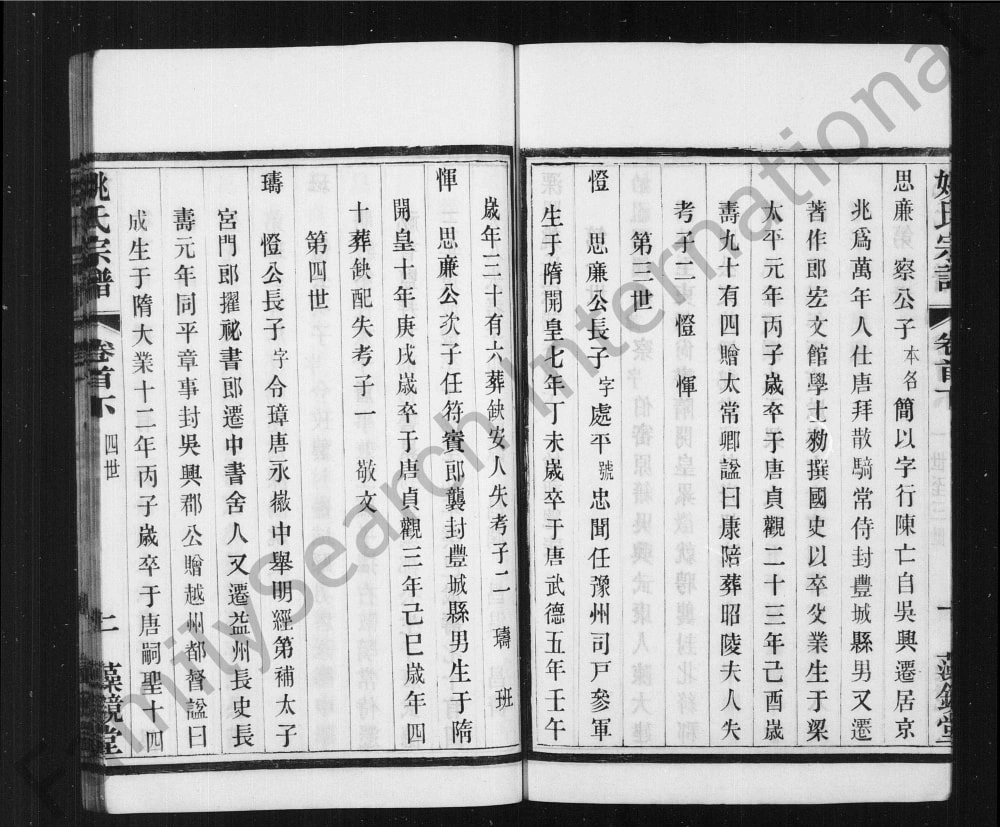 姚氏宗譜 卷首下 一 藻鏡堂
思廉 察公子本名簡以字行陳亡自吳興遷居京
兆爲萬年人仕唐拜散騎常侍封豐城縣男又遷
著作郎宏文館學士勑撰國史以卒父業生于梁
太平元年丙子歲卒于唐貞觀二十三年己酉歲
壽九十有四贈太常卿諡曰康陪葬昭陵夫人失
考子二 憕 惲
第三世
憕 思廉公長子字處平號忠聞任豫州司戸參軍
生于隋開皇七年丁未歲卒于唐武德五年壬午
歲年三十有六葬缺安人失考子二 璹 班
惲 思廉公次子任符寶郎襲封豐城縣男生于隋
開皇十年庚戌歲卒于唐貞觀三年己巳歲年四
十葬缺配失考子一 敬文
第四世
璹 憕公長子字令璋唐永徽中舉明經第補太子
宮門郎擢祕書郎遷中書舍人又遷益州長史長
壽元年同平章事封吳興郡公贈越州都督諡曰
成生于隋大業十二年丙子歲卒于唐嗣聖十四
姚氏宗譜 卷首下 四世 二 藻鏡堂
FamilySearch International